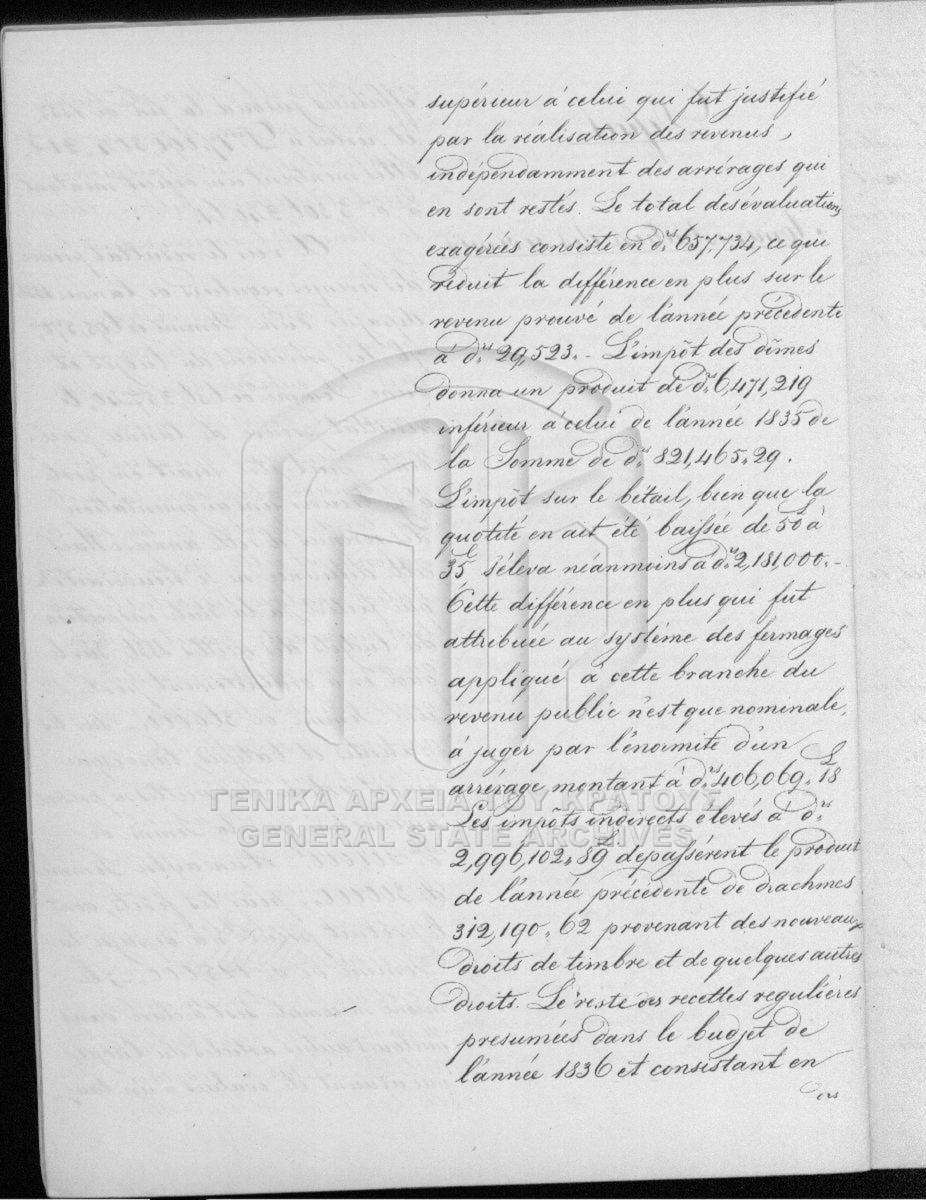 supérieur à celui qui fut justifié
par la réalisation des revenus,
indépendamment des arrérages qui
en sont restés. Le total des évaluations
exagérées consiste en drs 657.734, ce qui
réduit la différence en plus sur le
revenu prouvé de l'année précédente
à drs 29,523.- L'impôt des dîmes
donna un produit de drs 6,471,219
inférieur à celui de l'année 1835 de
la Somme de drs 821,465.29.
L'impôt sur le bétail, bien que la
quotité en ait été baissée de 50 à
35 s'éleva néanmoins à drs 2,181,000.-
Cette différence en plus qui fut
attribuée au système des fermages
appliqué à cette branche du
revenu public n'est que nominale,
à juger par l'énormité d'un
arrérage montant à drs 406,069.18
ΓΕΝΙΚΑ ΑΡΧΕΙΑ ΤΟΥ ΚΡΑΤΟΥΣ
Les impôts indirects élevés à drs
GENERAL STATE ARCHIVES
2,996,102.89 dépassèrent le produit
de l'année précédente de drachmes
312,190.62 provenant des nouveaux
droits de timbre et de quelques autres
droits. Le reste des recettes regulières
presumées dans le budjet de
l'année 1836 et consistant en